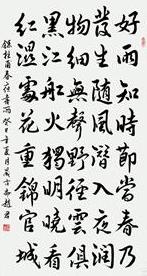 好雨知時節當春乃
發生随風潛入夜潤
物細無聲野徑雲俱
黑江船火獨明曉看
紅濕處花重錦官城
錄杜甫春夜喜雨癸巳年夏月